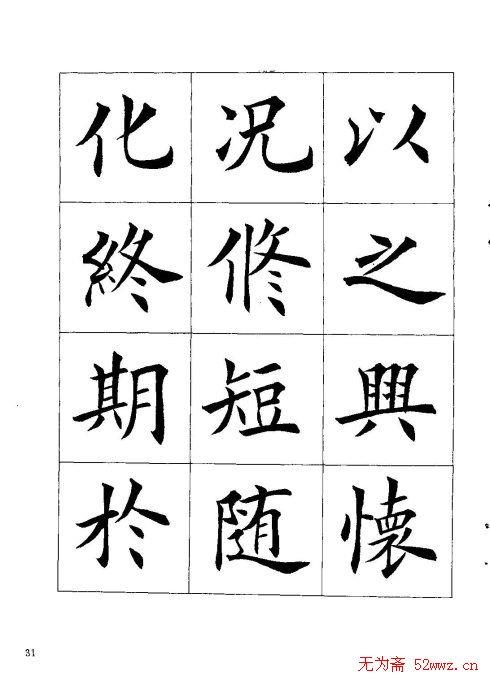 以之興懐
况修短随
化終期於
31
无为斋 52wwz.cn